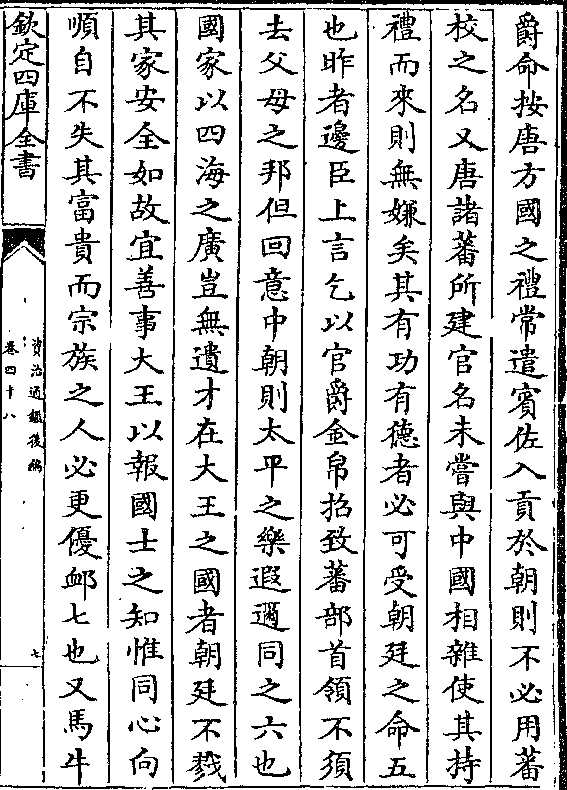 爵命按唐方國之禮常遣賓佐入貢於朝則不必用蕃
校之名又唐諸蕃所建官名未嘗與中國相雜使其持
禮而來則無嫌矣其有功有德者必可受朝廷之命五
也昨者邊臣上言乞以官爵金帛招致蕃部首領不須
去父母之邦但回意中朝則太平之樂遐邇同之六也
國家以四海之廣豈無遺才在大王之國者朝廷不戮
其家安全如故宜善事大王以報國士之知惟同心向
順自不失其富貴而宗族之人必更優䘏七也又馬牛
欽定四庫全書
資治通鑑後編
卷四十八
七